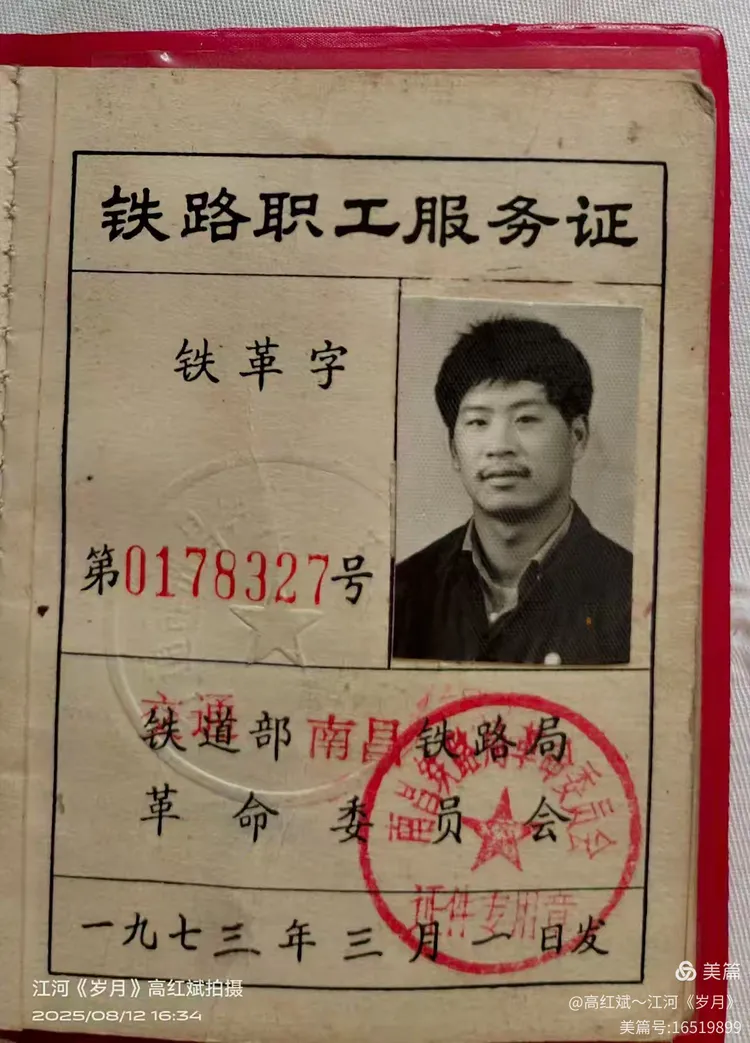 铁路职工服务证
铁革字
第0178327号
交通
铁道部南昌铁路局
革命委员会
南昌铁路局革命委员会
证件专用章
一九七三年三月一日发
江河《岁月》高红斌拍摄
2025/08/12 16:34
美篇
@高红斌～江河《岁月》
美篇号:16519899